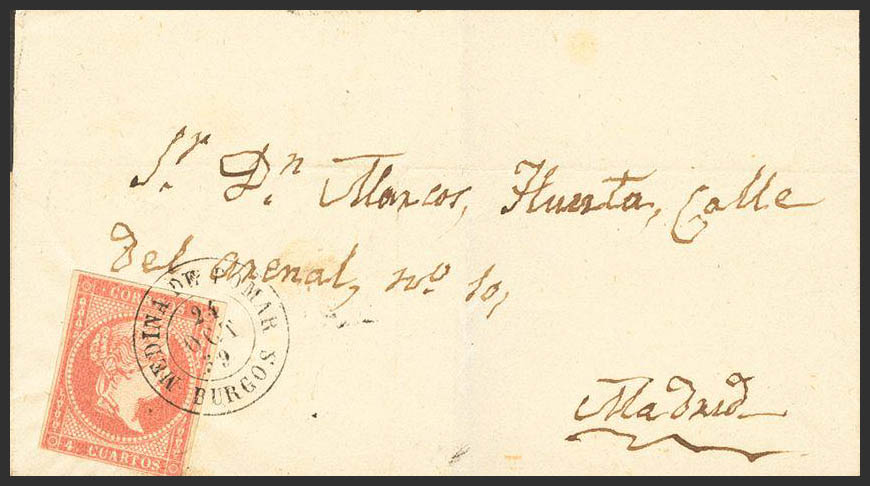 Sr. Dn Marcos, Huerta, Calle
Del arenal, no. 10,
Madrid
MEDINA DE POMAR
24
OCT
59
BURGOS
CORR
CUARTOS